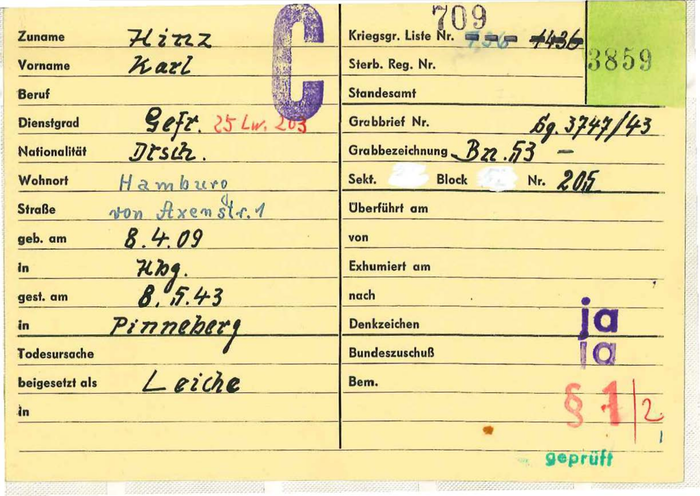 C
709
3859
Zuname Hinz
Vorname Karl
Beruf
Dienstgrad Gefr. 25 Lw. 203
Nationalität Dtsch.
Wohnort Hamburg
Straße von Axenstr. 1
geb. am 8.4.09
in Hbg.
gest. am 8.5.43
in Pinneberg
Todesursache
beigesetzt als Leiche
in
Kriegsgr. Liste Nr. 1436
Sterb. Reg. Nr.
Standesamt
Grabbrief Nr. 3747/43
Grabbezeichnung Bn. 53 –
Sekt. Block Nr. 205
Überführt am
von
Exhumiert am
nach
Denkzeichen ja
Bundeszuschuß ja
Bem.
§ 1/2
geprüft